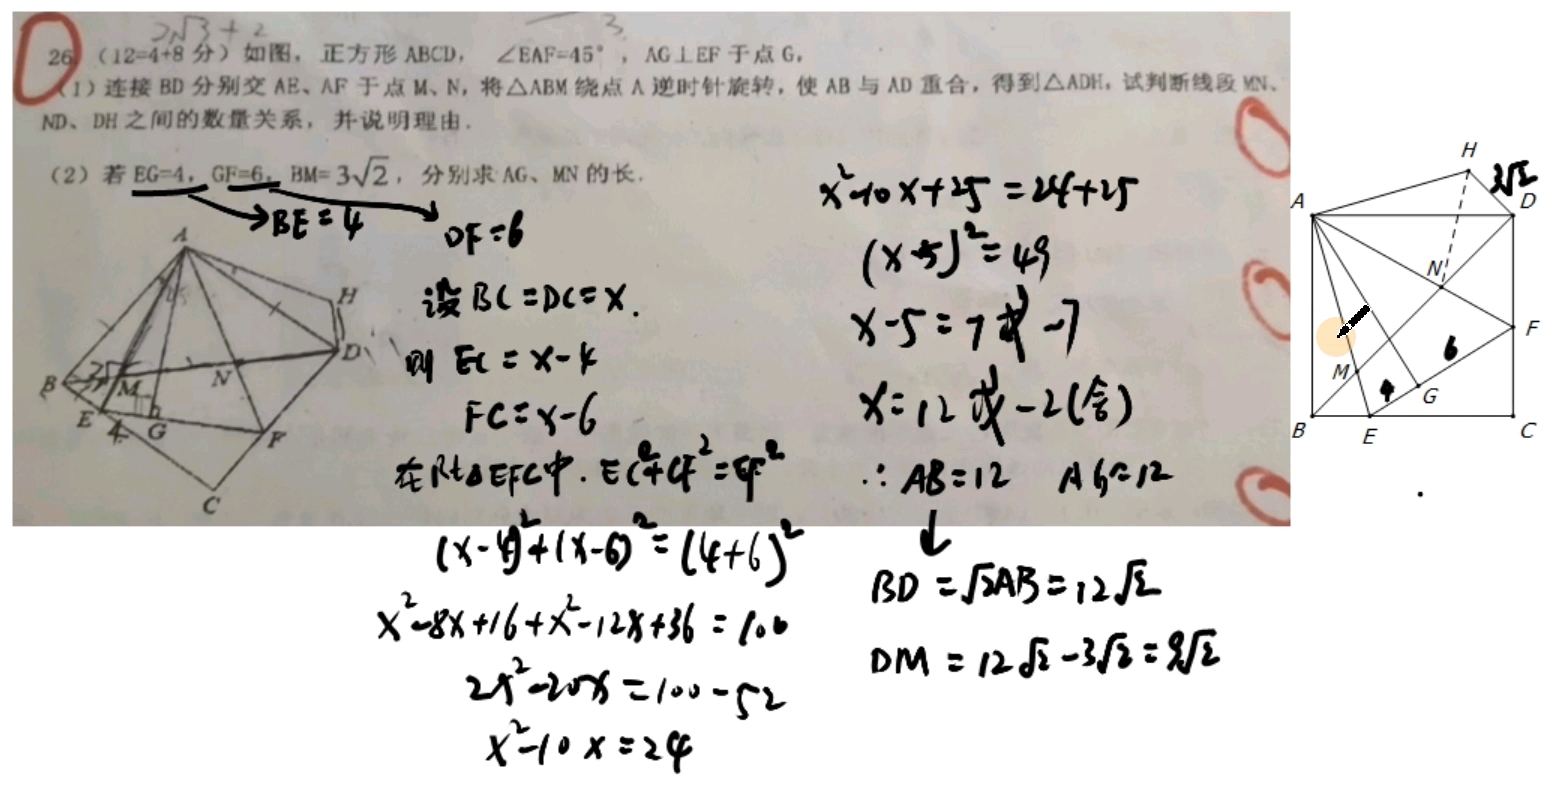 2√3+2
3
26.（12=4+8 分）如图，正方形 ABCD，∠EAF=45°，AG⊥EF 于点 G，
（1）连接 BD 分别交 AE、AF 于点 M、N，将△ABM 绕点 A 逆时针旋转，使 AB 与 AD 重合，得到△ADH，试判断线段 MN、
ND、DH 之间的数量关系，并说明理由.
（2）若 EG=4，GF=6，BM=3√2，分别求 AG、MN 的长.
BE=4
DF=6
设 BC=DC=x.
则 EC=x-4
FC=x-6
在Rt△EFC中. EC²+CF²=EF²
(x-4)²+(x-6)²=(4+6)²
x²-8x+16+x²-12x+36=100
2x²-20x=100-52
x²-10x=24
x²-10x+25=24+25
(x-5)²=49
x-5=7或-7
x=12或-2(舍)
∴AB=12 AG=12
BD=√2AB=12√2
DM=12√2-3√2=9√2
A
H
B
M
N
D
E
4
G
F
C
H
3√2
A
D
N
F
6
M
4
G
B
E
C